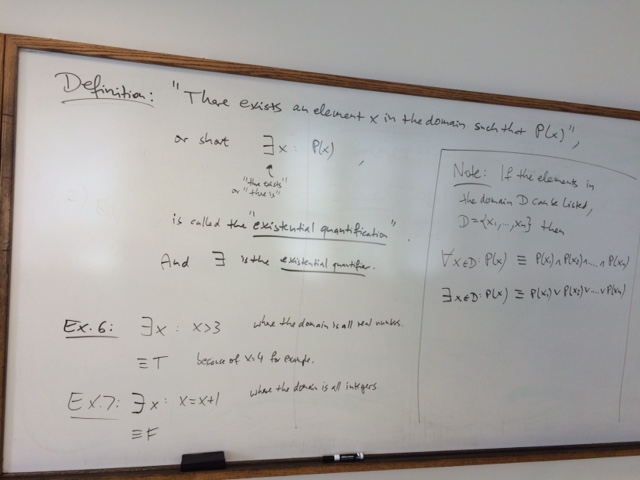 Definition: "There exists an element x in the domain such that P(x)",
or short ∃x: P(x),
"there exists"
or "there is"
is called the "existential quantification".
And ∃ is the existential quantifier.
Ex. 6: ∃x: x>3 where the domain is all real numbers.
≡T because of x=4 for example.
Ex. 7: ∃x: x=x+1 where the domain is all integers
≡F
Note: If the elements in
the domain D can be listed,
D={x₁,...,xₙ} then
∀x∈D: P(x) ≡ P(x₁)∧P(x₂)∧...∧P(xₙ)
∃x∈D: P(x) ≡ P(x₁)∨P(x₂)∨...∨P(xₙ)